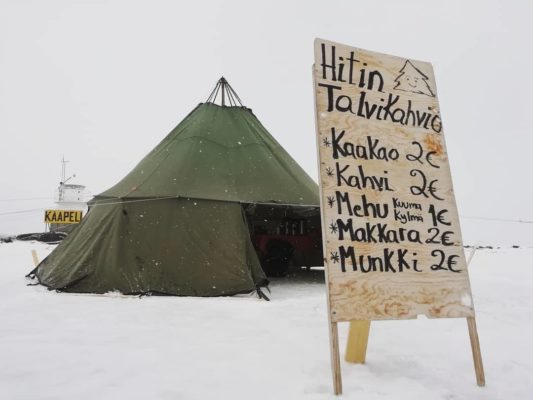 Hitin
TalviKahvio
*KaaKao 2€
*Kahvi 2€
*Mehu Kuuma Kylmä 1€
*Makkara 2€
*MunKKi 2€
KAAPELI